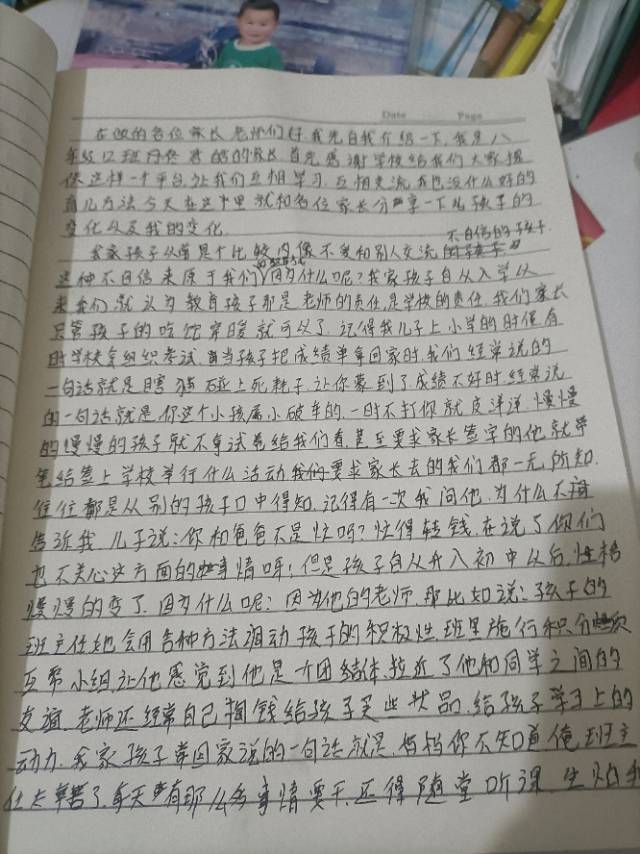 Date Page
在做的各位家长老师们好我先自我介绍一下,我是八
年级12班 的家长首先感谢学校给我们大家提
供这样一个平台,让我们互相学习,互相交流,我也没什么好的
育儿方法今天在这里就和各位家长分享一下儿孩子的
变化以及我的变化.
不自信的孩子.
我家孩子从前是个比较内像不爱和别人交流的孩子,
这种不自信来原于我们因为什么呢?我家孩子自从入学以
来我们就认为教育孩子那是老师的责任,是学校的责任.我们家长
只管孩子的吃饱穿暖就可以了.记得我儿子上小学的时候有
时学校会组织考试,当孩子把成绩单拿回家时,我们经常说的
一句话就是瞎猫碰上死耗子.让你蒙到了.成绩不好时,经常说
的一句话就是你这个小孩属小破车的.一时不打你就皮洋洋.慢慢
的慢慢的孩子就不拿试卷给我们看.甚至要求家长签字的他就带
笔给签上学校举行什么活动我们要求家长去的我们都一无所知.
往往都是从别的孩子口中得知.记得有一次我问他.为什么不
告诉我.儿子说:你和爸爸不是忙吗?忙得转钱.在说了你们
也不关心这方面的事情呀!但是孩子自从升入初中以后,性格
慢慢的变了.因为什么呢:因为他的老师.那比如说:孩子的
班主任她会用各种方法调动孩子的积极性.班里施行积分
互帮小组让他感觉到他是一个团结体,拉近了他和同学之间的
友谊.老师还经常自己掏钱给孩子买些状品.给孩子学习上的
动力.我家孩子常回家说的一句话就是,妈妈你不知道俺班主
任太辛苦了.每天有那么多事情要干.还得随堂听课.